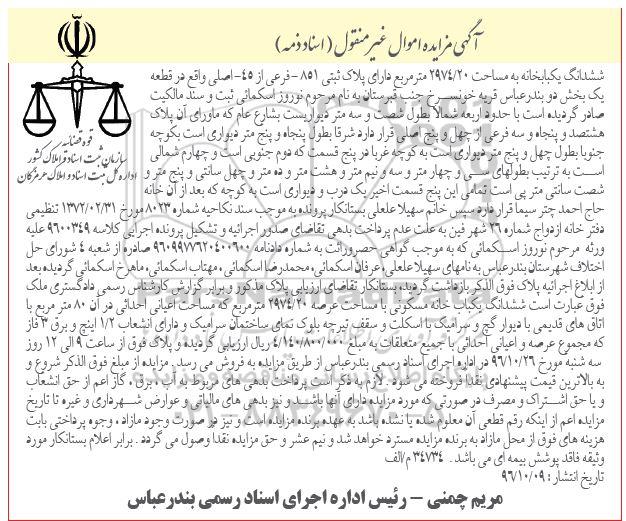 آگهی مزایده اموال غیر منقول (اسناد ذمه)
قوه قضائیه
سازمان ثبت اسناد و املاک کشور
اداره کل ثبت اسناد و املاک هرمزگان
ششدانگ یکبابخانه به مساحت ۲۹۷۴/۲۰ مترمربع دارای پلاک ثبتی ۸۵۱ - فرعی از ۴۵-اصلی واقع در قطعه
یک بخش دو بندرعباس قریه خونسرخ جنب قبرستان به نام مرحوم نوروز اسکمائی ثبت و سند مالکیت
صادر گردیده است با حدود اربعه شمالا بطول شصت و سه متر دیواریست بشارع عام که ماورای آن پلاک
هشتصد و پنجاه و سه فرعی از چهل و پنج اصلی قرار دارد شرقا بطول پنجاه و پنج متر دیواری است بکوچه
جنوبا بطول چهل و پنج متر دیواری است به کوچه غربا در پنج قسمت که دوم جنوبی است و چهارم شمالی
است به ترتیب بطولهای سی و چهار متر و سه و نیم متر و هشت متر و ده متر و چهل سانتی و پنج متر و
شصت سانتی متر پی است تمامی این پنج قسمت اخیر یک درب و دیواری است به کوچه که بعد از آن خانه
حاج احمد چتر سیما قرار دارد سپس خانم سهیلا علعلی بستانکار پرونده به موجب سند نکاحیه شماره ۸۰۲۳ مورخ ۱۳۷۲/۰۲/۳۱ تنظیمی
دفتر خانه ازدواج شماره ۲۶ شهر فین به علت عدم پرداخت بدهی تقاضای صدور اجرائیه و تشکیل پرونده اجرایی کلاسه ۹۶۰۰۳۴۹ علیه
ورثه مرحوم نوروز اسکمائی که به موجب گواهی حصروراثت به شماره دادنامه ۹۶۰۹۹۷۷۶۲۰۴۰۰۶۰۰ صادره از شعبه ۴ شورای حل
اختلاف شهرستان بندرعباس به نامهای سهیلا علعلی ،عرفان اسکمائی،محمدرضا اسکمائی ، مهتاب اسکمائی،ماهرخ اسکمائی گردیده بعد
از ابلاغ اجرائیه پلاک فوق الذکر بازداشت گردیده،بستانکار تقاضای ارزیابی پلاک مذکور و برابر گزارش کارشناس رسمی دادگستری ملک
فوق عبارت است ششدانگ یکباب خانه مسکونی با مساحت عرصه ۲۹۷۴/۲۰ مترمربع که مساحت اعیانی احداثی در آن ۸۰ متر مربع با
اتاق های قدیمی با دیوار گچ و سرامیک با اسکلت و سقف تیرچه بلوک نمای ساختمان سرامیک و دارای انشعاب ۱/۲ اینچ و برق ۳ فاز
که مجموع عرصه و اعیانی احداثی با جمیع متعلقات به مبلغ ۴/۱۴۰/۸۰۰/۰۰۰ ریال ارزیابی گردیده و پلاک فوق از ساعت ۹ الی ۱۲ روز
سه شنبه مورخ ۹۶/۱۰/۲۶ در اداره اجرای اسناد رسمی بندرعباس از طریق مزایده به فروش می رسد . مزایده از مبلغ فوق الذکر شروع و
به بالاترین قیمت پیشنهادی نقدا فروخته می شود . لازم به ذکر است پرداخت بدهی های مربوط به آب ، برق ، گاز اعم از حق انشعاب
و یا حق اشتراک و مصرف در صورتی که مورد مزایده دارای آنها باشد و نیز بدهی های مالیاتی و عوارض شهرداری و غیره تا تاریخ
مزایده اعم از اینکه رقم قطعی آن معلوم شده یا نشده باشد به عهده برنده مزایده است و نیز در صورت وجود مازاد ، وجوه پرداختی بابت
هزینه های فوق از محل مازاد به برنده مزایده مسترد خواهد شد و نیم عشر و حق مزایده نقدا وصول می گردد . برابر اعلام بستانکار مورد
وثیقه فاقد پوشش بیمه ای می باشد . ۳۴۷۳۴ م/الف
تاریخ انتشار : ۹۶/۱۰/۰۹
مریم چمنی – رئیس اداره اجرای اسناد رسمی بندرعباس